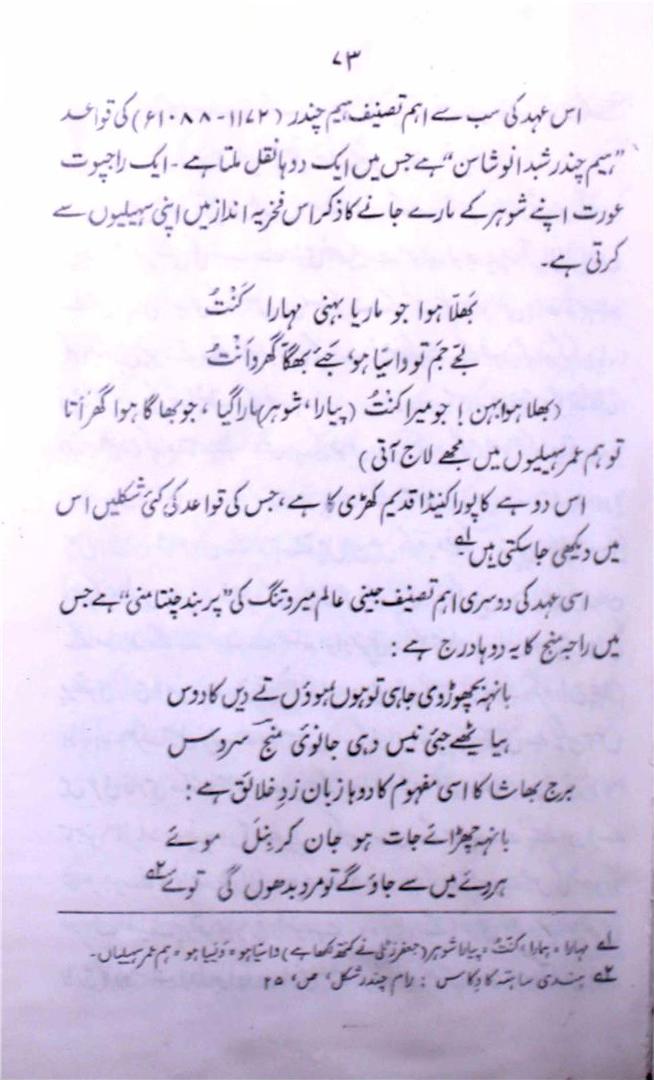 ۷۳
اس عہد کی سب سے اہم تصنیف ہیم چندر (۱۱۷۲-۱۰۸۸ء) کی قواعد
”ہیم چندر شبد انوشاسن“ ہے جس میں ایک دوہا نقل ملتا ہے۔ ایک راجپوت
عورت اپنے شوہر کے مارے جانے کا ذکر اس فخریہ انداز میں اپنی سہیلیوں سے
کرتی ہے۔
بَھلّا ہوا جو ماریا بہنی مہارا کَنْتُ
لجّے جم تو واسیا ہو جَے بھگّا گھرو اَنْتُ
(بھلا ہوا بہن! جو میرا کَنتُ (پیارا، شوہر) مارا گیا، جو بھاگا ہوا گھر آتا
تو ہم عمر سہیلیوں میں مجھے لاج آتی)
اس دوہے کا پورا کینڈا قدیم کھڑی کا ہے، جس کی قواعد کی کئی شکلیں اس
میں دیکھی جاسکتی ہیں۱؎
اسی عہد کی دوسری اہم تصنیف جینی عالم میروتنگ کی ”پربند چنتامنی“ ہے جس
میں راجہ منج کا یہ دوہا درج ہے :
بانہہ بچھوڑوی جاہی توہوں
برج بھاشا کا اسی مفہوم کا دوہا زبان زدِ خلائق ہے :
بانہہ چھڑائے جات ہو جان کر نبل موئے
ہردے میں سے جاؤ گے تو مرد بدھوں گی توئے۲؎
۱؎ مہارا = ہمارا، کنتُ = پیارا شوہر (جعفر زٹلی نے کنتھ لکھا ہے) واسیاہو = ونیاہو = ہم عمر سہیلیاں۔
۲؎ ہندی ساہتیہ کا وکاس : رام چندر شکل، ص،